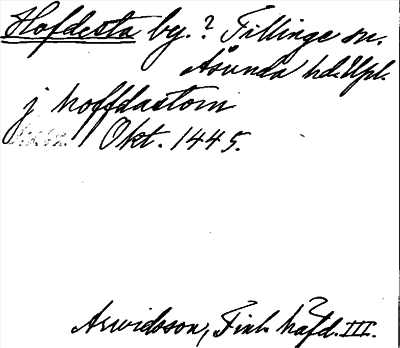 Hofdesta by.? Tillinge sn.
Åsunda hd. Upl.
j hoffdastom
Okt. 1445.
Arwidsson, Finl. häfd. III.